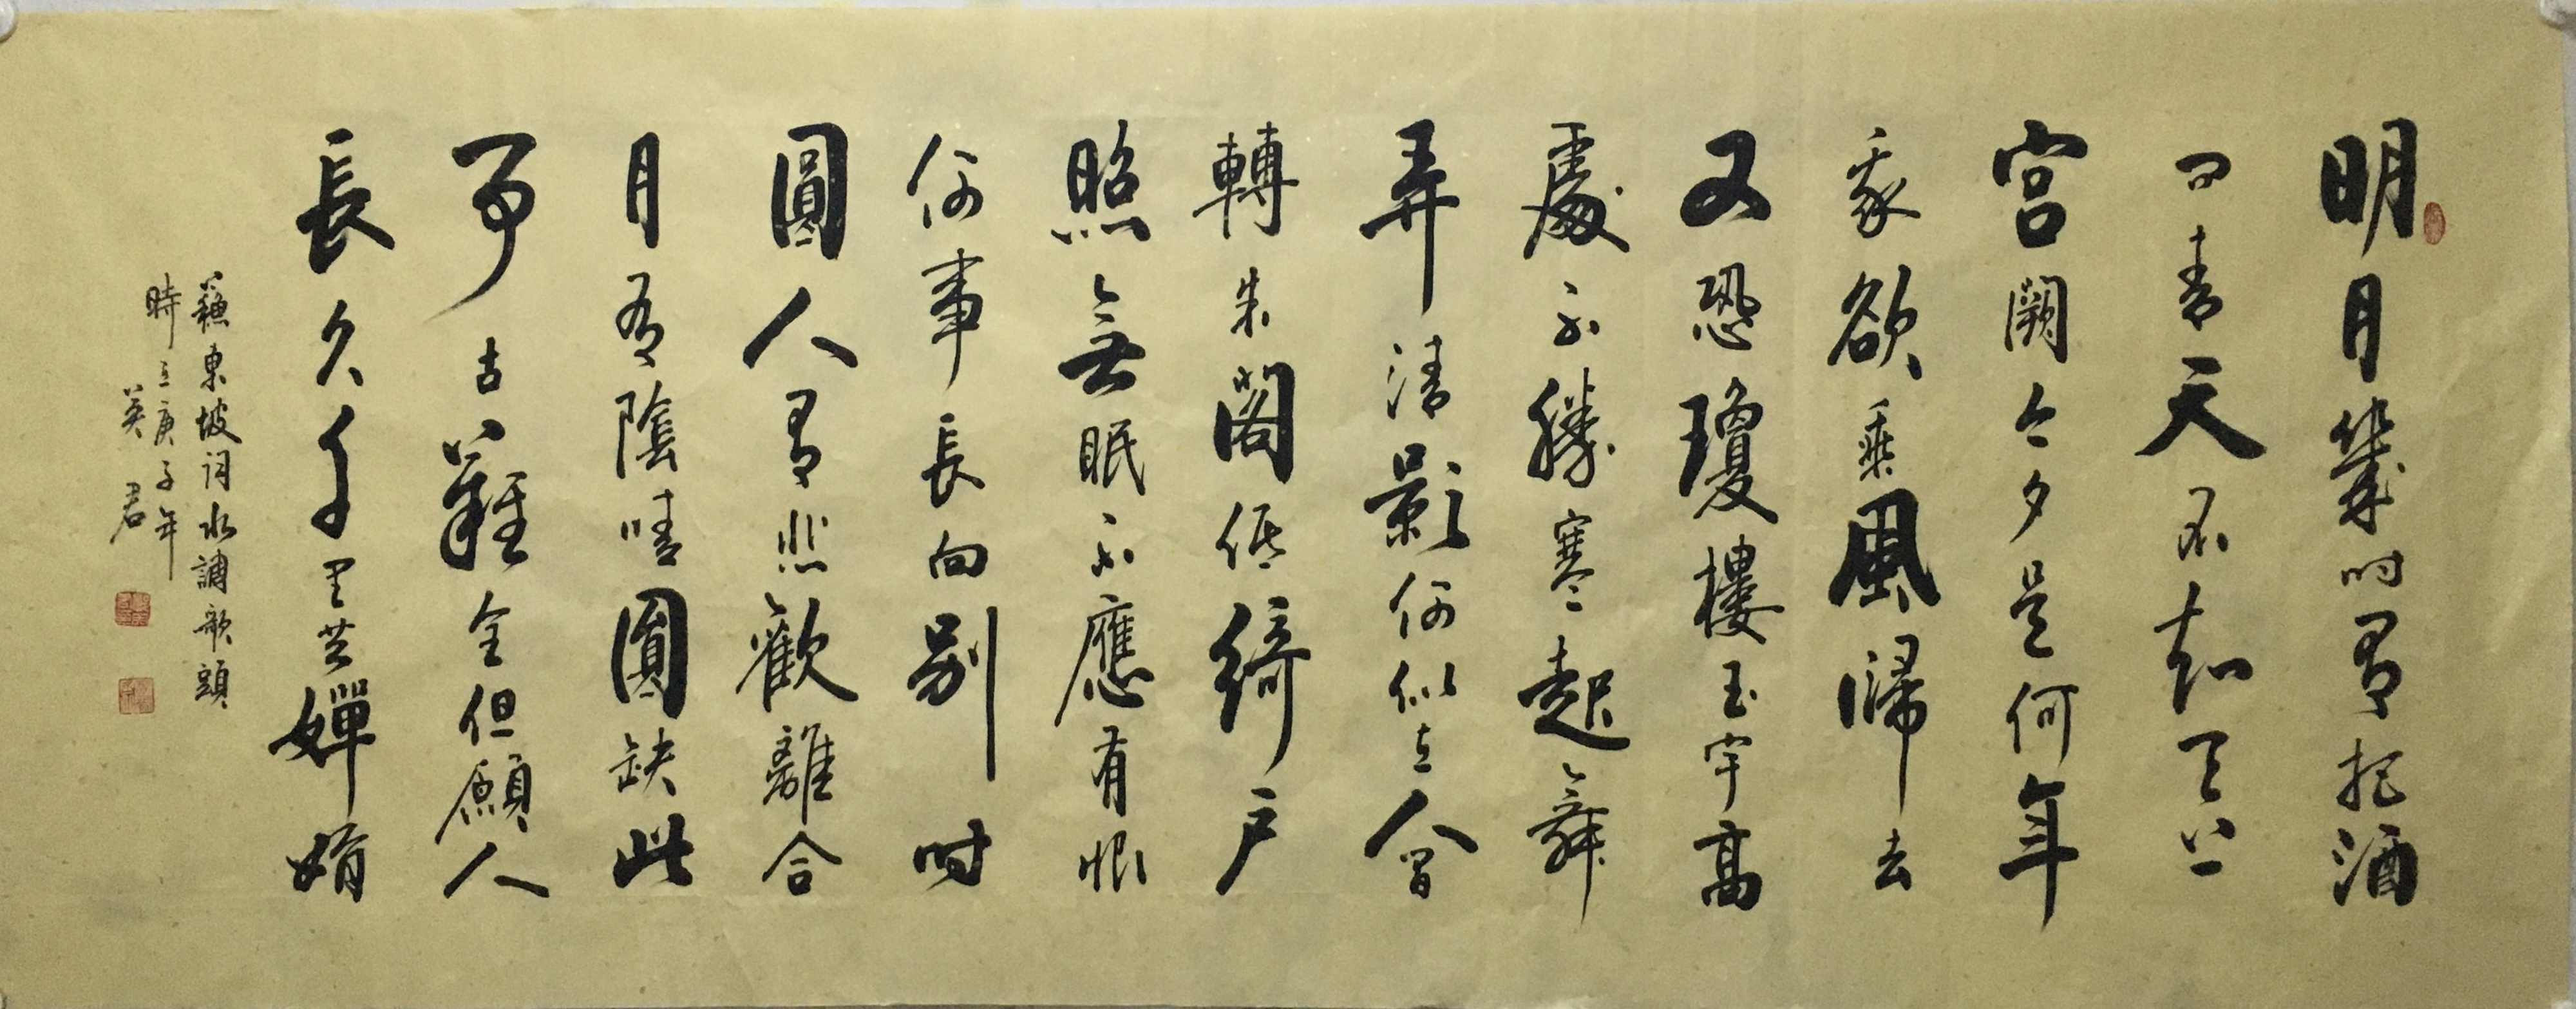 明月幾时有把酒
问青天不知天上
宫闕今夕是何年
我欲乘風歸去
又恐瓊樓玉宇高
處不勝寒起舞
弄清影何似在人間
轉朱閣低綺户
照無眠不應有恨
何事長向别时
圓人有悲歡離合
月有陰晴圓缺此
事古難全但願人
長久千里共嬋娟
蘇東坡词水調歌頭
時在庚子年
英君